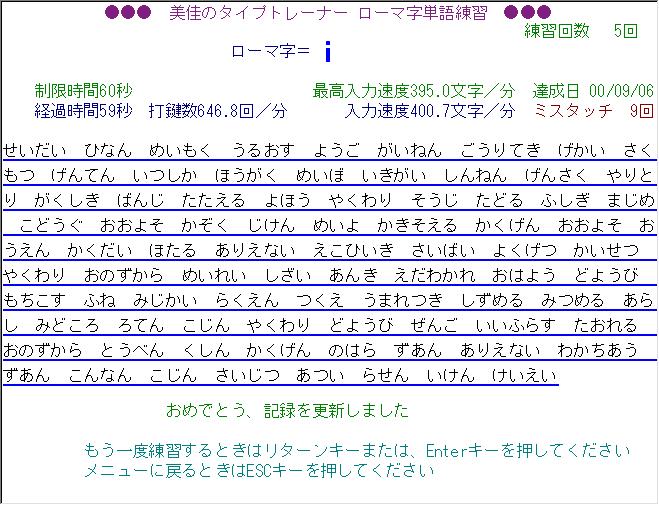 ●●● 美佳のタイプトレーナー ローマ字単語練習 ●●●
練習回数 5回
ローマ字＝ i
制限時間60秒 最高入力速度395.0文字／分 達成日 00/09/06
経過時間59秒 打鍵数646.8回／分 入力速度400.7文字／分 ミスタッチ 9回
せいだい ひなん めいもく うるおす ようご がいねん ごうりてき げかい さく
もつ げんてん いつしか ほうがく めいぼ いきがい しんねん げんさく やりと
り がくしき ばんじ たたえる よほう やくわり そうじ たどる ふしぎ まじめ
こどうぐ おおよそ かぞく じけん めいよ かきそえる かくげん おおよそ お
うえん かくだい ほたる ありえない えこひいき さいばい よくげつ かいせつ
やくわり おのずから めいれい しざい あんき えだわかれ おはよう どようび
もちこす ふね みじかい らくえん つくえ うまれつき しずめる みつめる あら
し みどころ ろてん こじん やくわり どようび ぜんご いいふらす たおれる
おのずから とうべん くしん かくげん のはら ずあん ありえない わかちあう
ずあん こんなん こじん さいじつ あつい らせん いけん けいえい
おめでとう、記録を更新しました
もう一度練習するときはリターンキーまたは、Enterキーを押してください
メニューに戻るときはESCキーを押してください